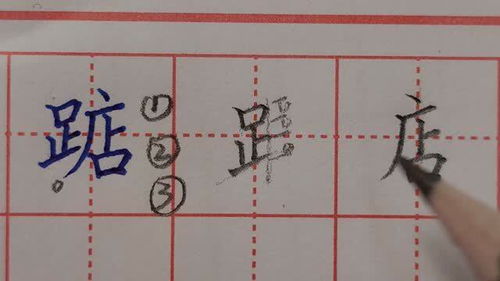 踮 ① ② ③ 𧾷 店